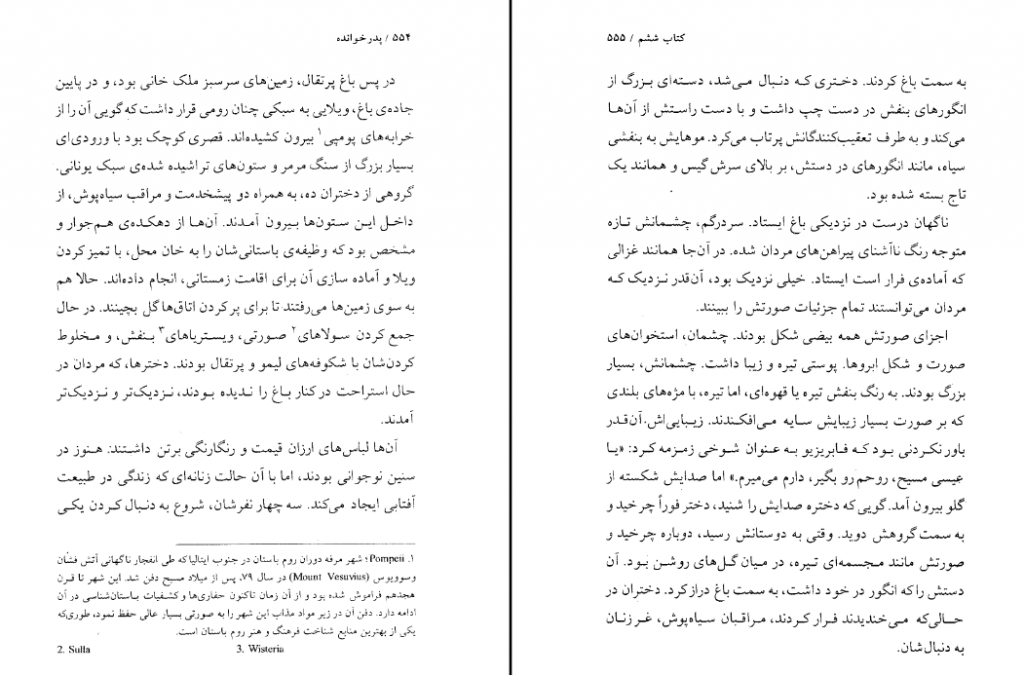 ۵۵۴ / پدرخوانده
در پس باغ پرتقال، زمین‌های سرسبز ملک خانی بود، و در پایین
جاده‌ی باغ، ویلایی به سبکی چنان رومی قرار داشت که گویی آن را از
خرابه‌های پومپی۱ بیرون کشیده‌اند. قصری کوچک بود با ورودی‌ای
بسیار بزرگ از سنگ مرمر و ستون‌های تراشیده شده‌ی سبک یونانی.
گروهی از دختران ده، به همراه دو پیشخدمت و مراقب سیاه‌پوش، از
داخل این ستون‌ها بیرون آمدند. آن‌ها از دهکده‌ی هم‌جوار و
مشخص بود که وظیفه‌ی باستانی‌شان را به خان محل، با تمیز کردن
ویلا و آماده سازی آن برای اقامت زمستانی، انجام داده‌اند. حالا هم
به سوی زمین‌ها می‌رفتند تا برای پر کردن اتاق‌ها گل بچینند. در حال
جمع کردن سولاهای۲ صورتی، ویستریاهای۳ بنفش، و مخلوط
کردن‌شان با شکوفه‌های لیمو و پرتقال بودند. دخترها، که مردان در
حال استراحت در کنار باغ را ندیده بودند، نزدیک‌تر و نزدیک‌تر
آمدند.
آن‌ها لباس‌های ارزان قیمت و رنگارنگی برتن داشتند: هنوز در
سنین نوجوانی بودند، اما با آن حالت زنانه‌ای که زندگی در طبیعت
آفتابی ایجاد می‌کند. سه چهار نفرشان، شروع به دنبال کردن یکی
۱. Pompeii؛ شهر مرفه دوران روم باستان در جنوب ایتالیا که طی انفجار ناگهانی آتش فشان
وسوویوس (Mount Vesuvius) در سال ۷۹، پس از میلاد مسیح دفن شد. این شهر تا قرن
هجدهم فراموش شده بود و از آن زمان تاکنون حفاری‌ها و کشفیات باستان‌شناسی در آن
ادامه دارد. دفن آن در زیر مواد مذاب این شهر را به صورتی بسیار عالی حفظ نمود، طوری‌که
یکی از بهترین منابع شناخت فرهنگ و هنر روم باستان است.
2. Sulla 3. Wisteria
کتاب ششم / ۵۵۵
به سمت باغ کردند. دختری که دنبال می‌شد، دسته‌ای بزرگ از
انگورهای بنفش در دست چپ داشت و با دست راستش از آن‌ها
می‌کند و به طرف تعقیب‌کنندگانش پرتاب می‌کرد. موهایش به بنفشی
سیاه، مانند انگورهای در دستش، بر بالای سرش گیس و همانند یک
تاج بسته شده بود.
ناگهان درست در نزدیکی باغ ایستاد. سردرگم، چشمانش تازه
متوجه رنگ ناآشنای پیراهن‌های مردان شده. در آن‌جا همانند غزالی
که آماده‌ی فرار است ایستاد. خیلی نزدیک بود، آن‌قدر نزدیک که
مردان می‌توانستند تمام جزئیات صورتش را ببینند.
اجزای صورتش همه بیضی شکل بودند. چشمان، استخوان‌های
صورت و شکل ابروها. پوستی تیره و زیبا داشت. چشمانش، بسیار
بزرگ بودند. به رنگ بنفش تیره یا قهوه‌ای، اما تیره، با مژه‌های بلندی
که بر صورت بسیار زیبایش سایه می‌افکندند. زیبایی‌اش.آن‌قدر
باور نکردنی بود که فابریزیو به عنوان شوخی زمزمه کرد: «یا
عیسی مسیح، روحم رو بگیر، دارم می‌میرم.» اما صدایش شکسته از
گلو بیرون آمد. گویی‌که دختره صدایش را شنید، دختر فوراً چرخید و
به سمت گروهش دوید. وقتی به دوستانش رسید، دوباره چرخید و
صورتش مانند مجسمه‌ای تیره، در میان گل‌های روشن بود. آن
دستش را که انگور در خود داشت، به سمت باغ دراز کرد. دختران در
حالی‌که می‌خندیدند فرار کردند، مراقبان سیاه‌پوش، غر زنان
به دنبال‌شان.